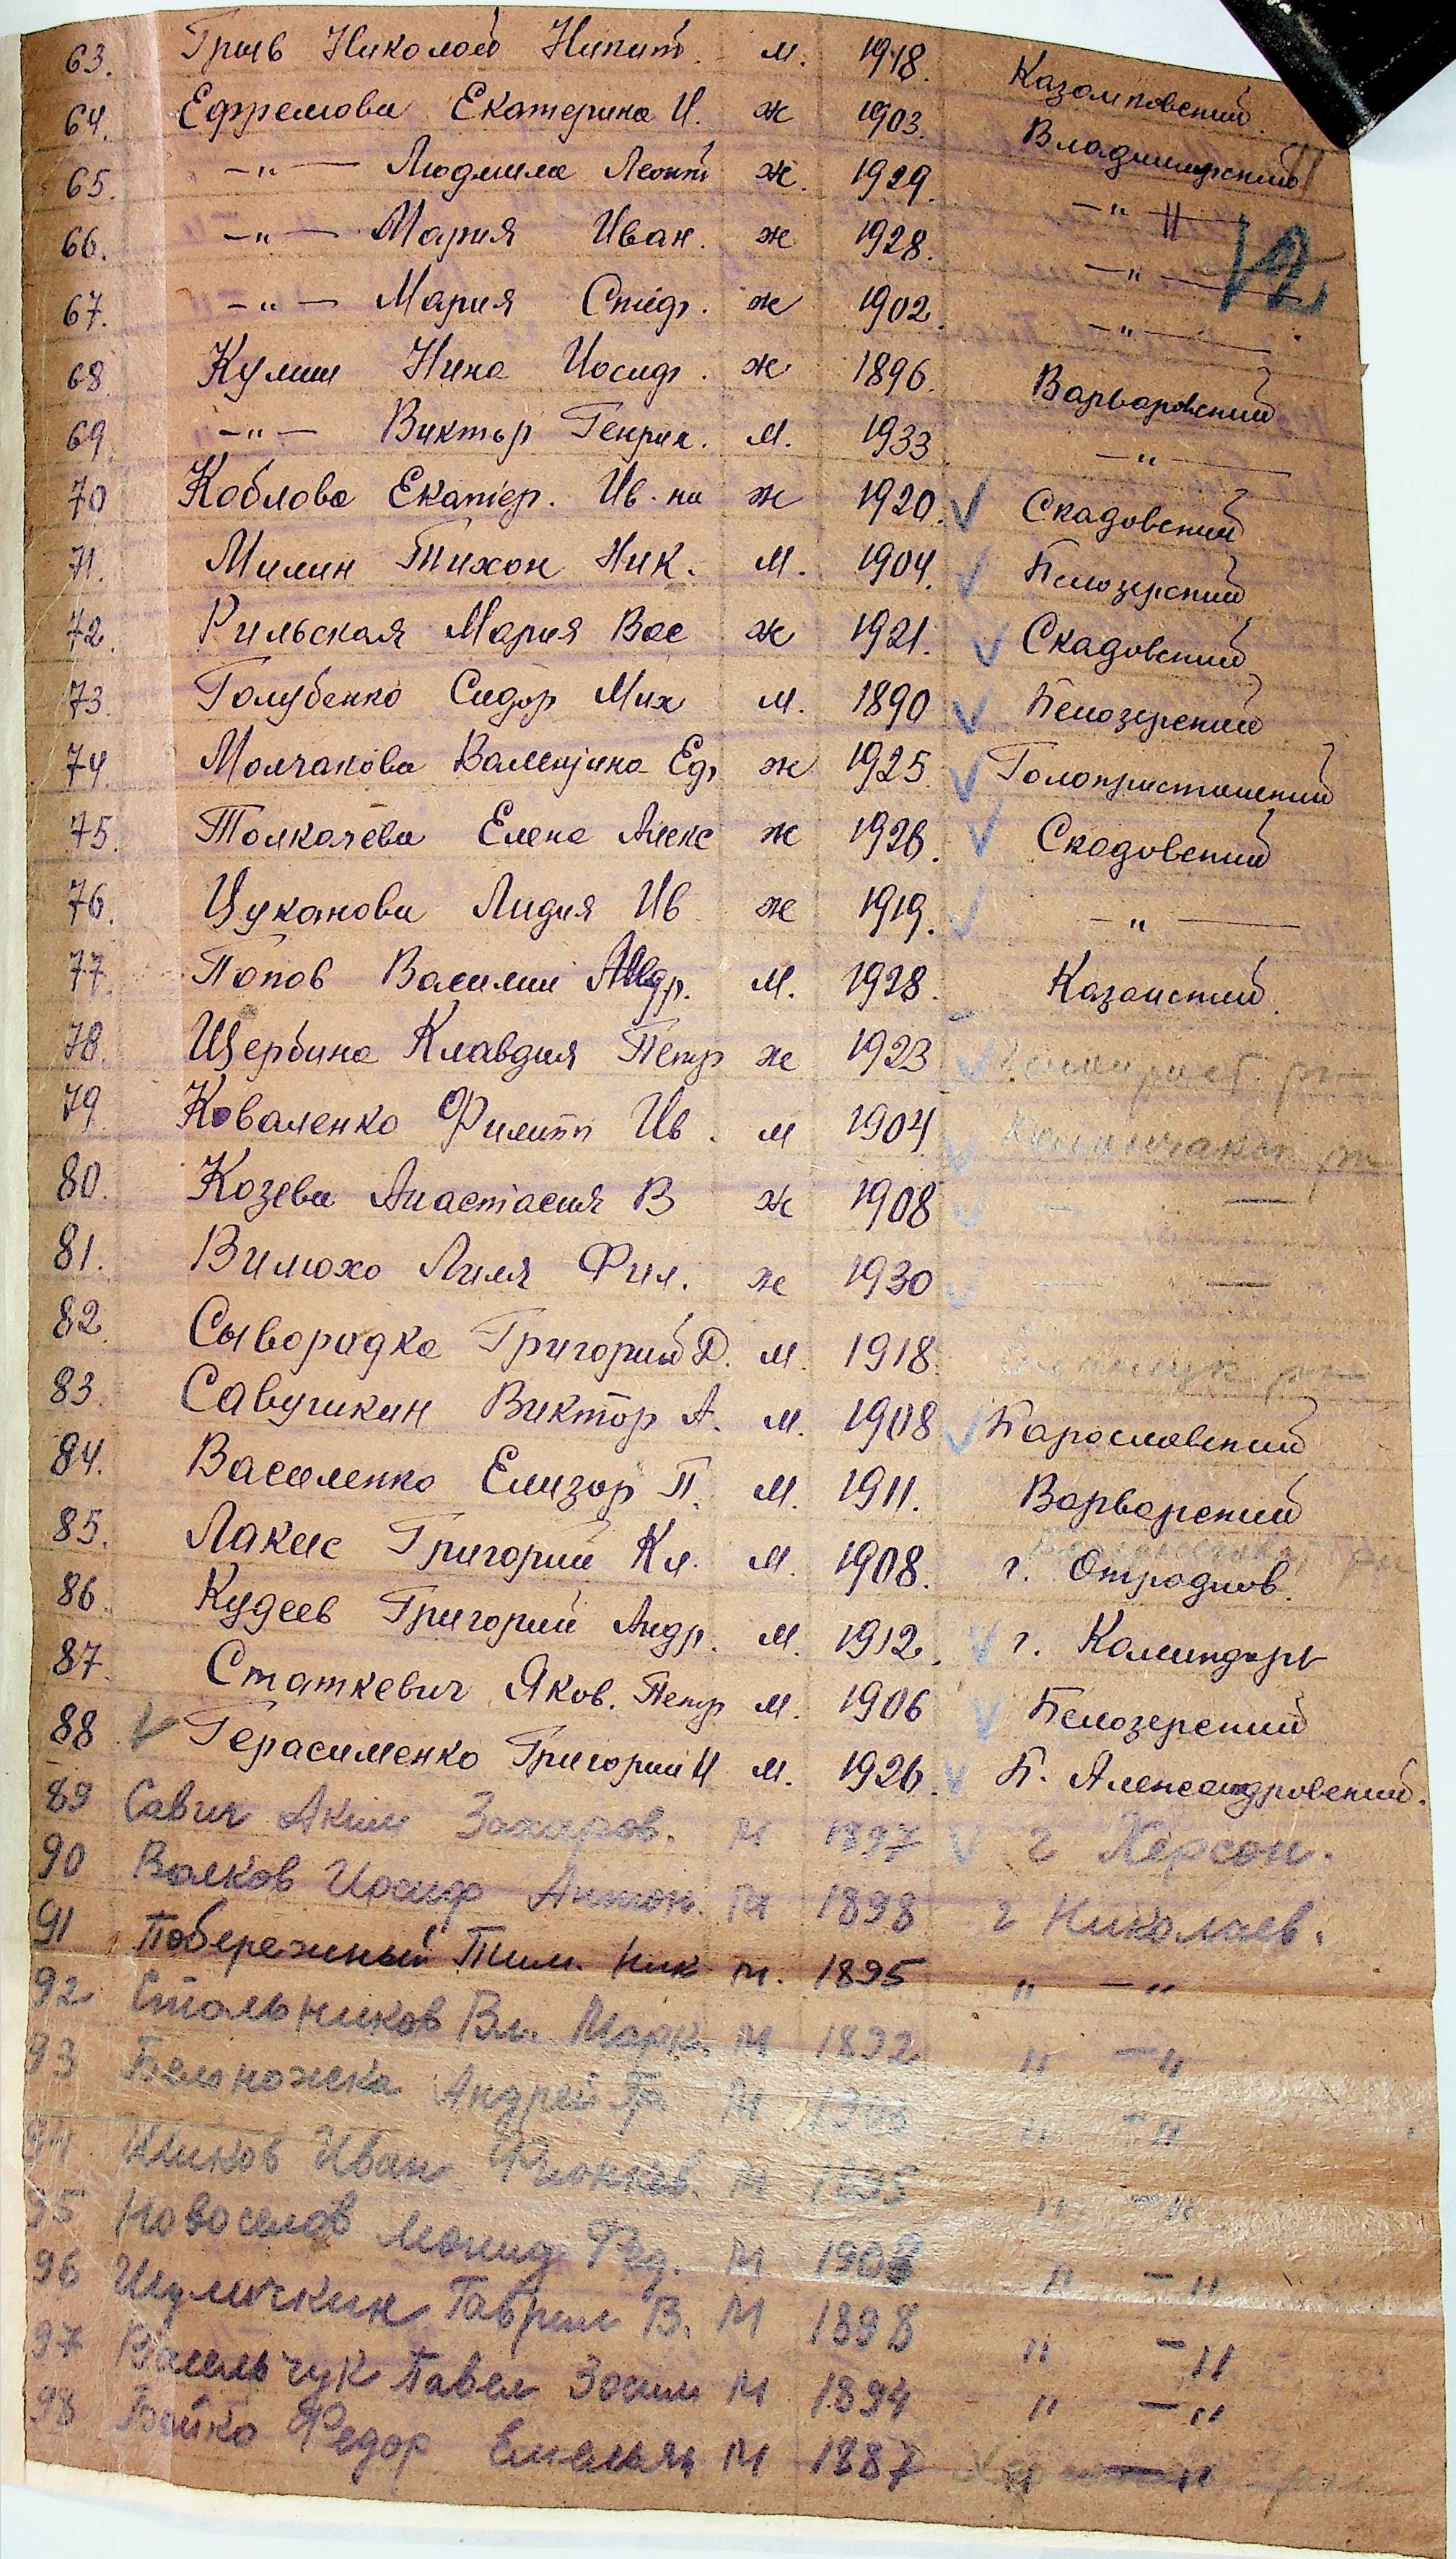 63. Николай Никит. м. 1918.
64. Ефремова Екатерина И. ж 1903. Владимирский
65. —"— Людмила Леонт ж. 1929. —"—
66. —"— Мария Иван. ж 1928. —"—
12
67. —"— Мария Стеф. ж 1902. —"—
68 Кулиш Нина Иосиф. ж 1896. Варваровский
69. —"— Виктор Генрих. м. 1933 —"—
70 Коблова Екатер. Ив-на ж 1920. Скадовский
71. Милин Тихон Ник. м. 1904. Белозерский
72. Рильская Мария Вас ж 1921. Скадовский
73. Голубенко Сидор Мих м. 1890 Белозерский
74. Молчакова Валентина Еф. ж 1925 Голопристанский
75. Толкачева Елена Алекс ж 1926. Скадовский
76. Цуканова Лидия Ив ж 1919. —"—
77. Попов Василий м. 1928. Казанский.
78. Щербина Клавдия Петр ж 1923
79. Коваленко Филипп Ив. м 1904
80. Козева Анастасия В ж 1908 —
81. Вилюхо Лиля Фил. ж 1930 —
82. Сывородка Григорий Д. м. 1918.
83. Савушкин Виктор А. м. 1908
84. Василенко Елизар П. м. 1911. Варварский
85. Лакис Григорий Кл. м. 1908. г. Отраднов.
86. Кудеев Григорий Андр. м. 1912. г.
87. Статкевич Яков. Петр м. 1906 Белозерский
88 Герасименко Григорий И м. 1926. Б. Александровский.
89 Савич Аким Захаров. м 1897 г Херсон.
90 Волков Иосиф Антон. м 1898 г Николаев.
91 Побережный Тим. Ник м. 1895 " — "
92 Стольников Вл. Марк. м 1892 " — "
93 Белоножка Андрей м " — "
94 Иван м 1895 " — "
95 Новоселов Леонид Фед. м 1903 " — "
96 Шуличкин Гаврил В. м 1898 " — "
97 Павел Зосим м 1894 " — "
98 Бойко Федор Емельян м 1887 " — "